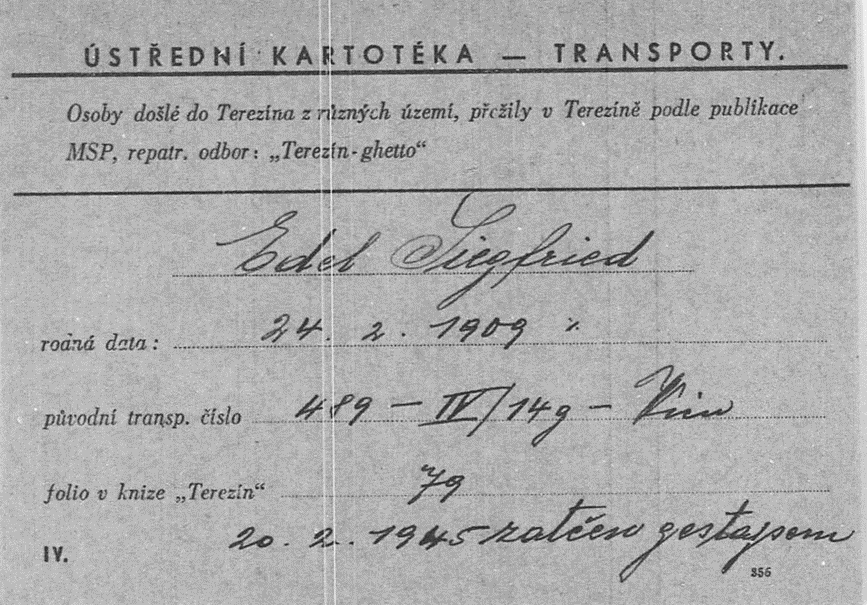 ÚSTŘEDNÍ KARTOTÉKA — TRANSPORTY.
Osoby došlé do Terezína z různých území, přežily v Terezíně podle publikace
MSP, repatr. odbor: „Terezín-ghetto“
Edel Siegfried
rodná data: 24. 2. 1909
původní transp. číslo 489 — IV/14g — Wien
folio v knize „Terezín“ 79
IV. 20. 2. 1945 zatčen gestapem
356